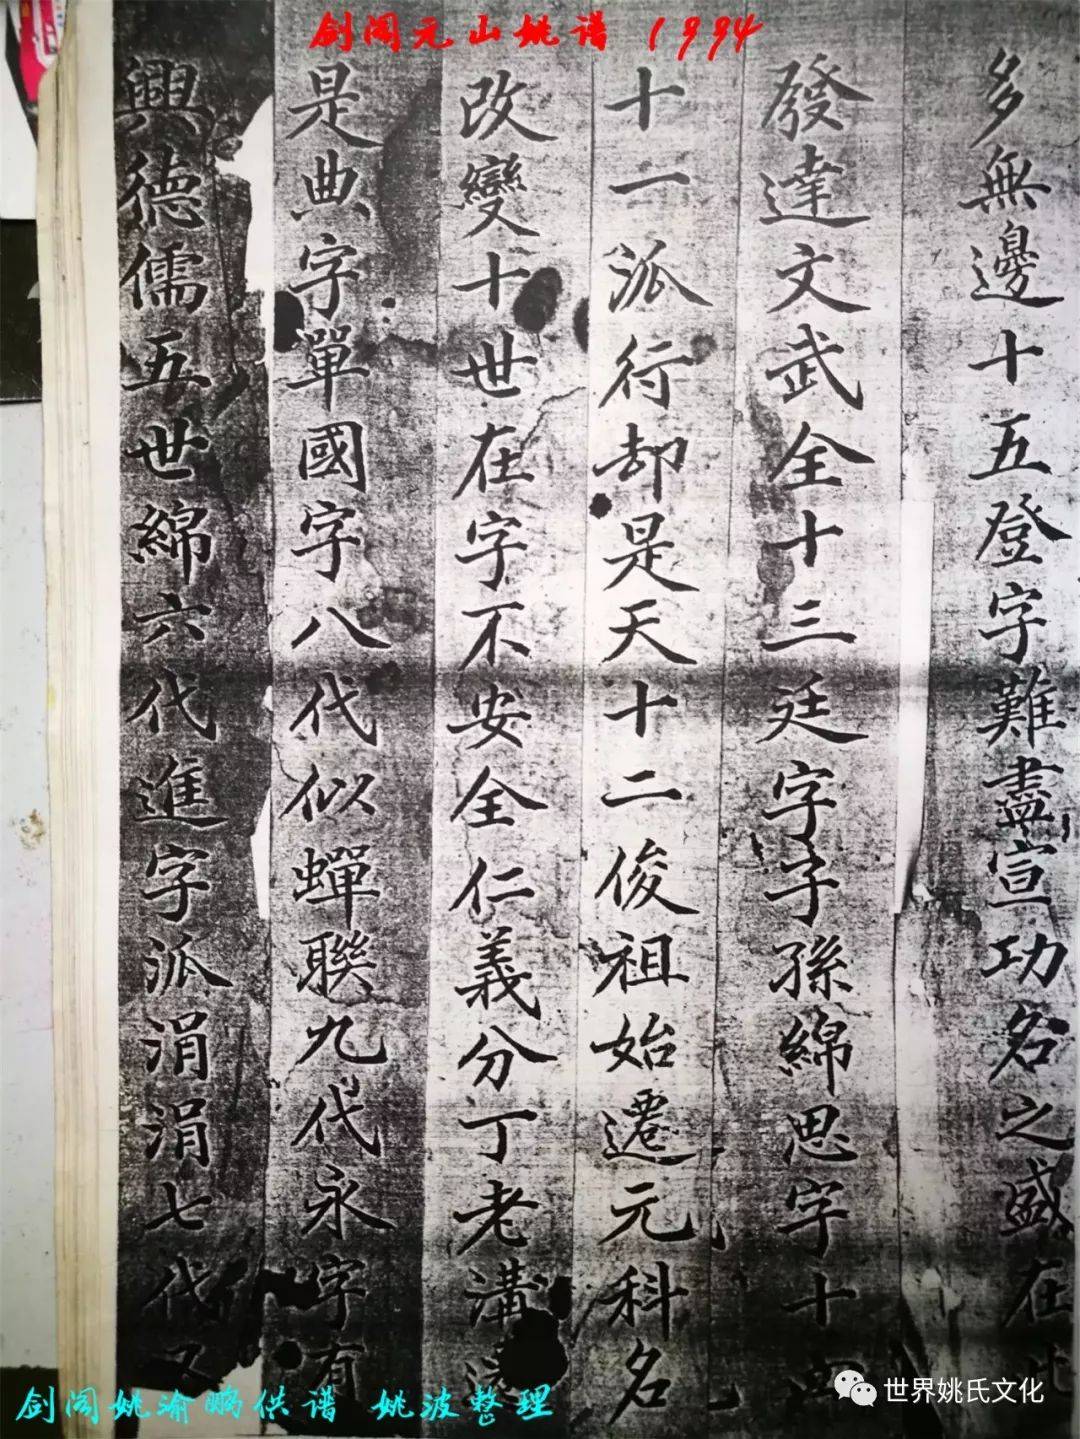 剑阁元山姚谱 1994
興德儒五世綿六代進字派涓涓七代又
是典字單國字八代似蟬聯九代永字有
改變十世在字不安全仁義分丁老溝
十一派行却是天十二俊祖始遷元科名
發達文武全十三廷字子孫綿思字十四
多無邊十五登字難盡宣功名之盛在此
剑阁姚渝鹏供谱 姚波整理
世界姚氏文化